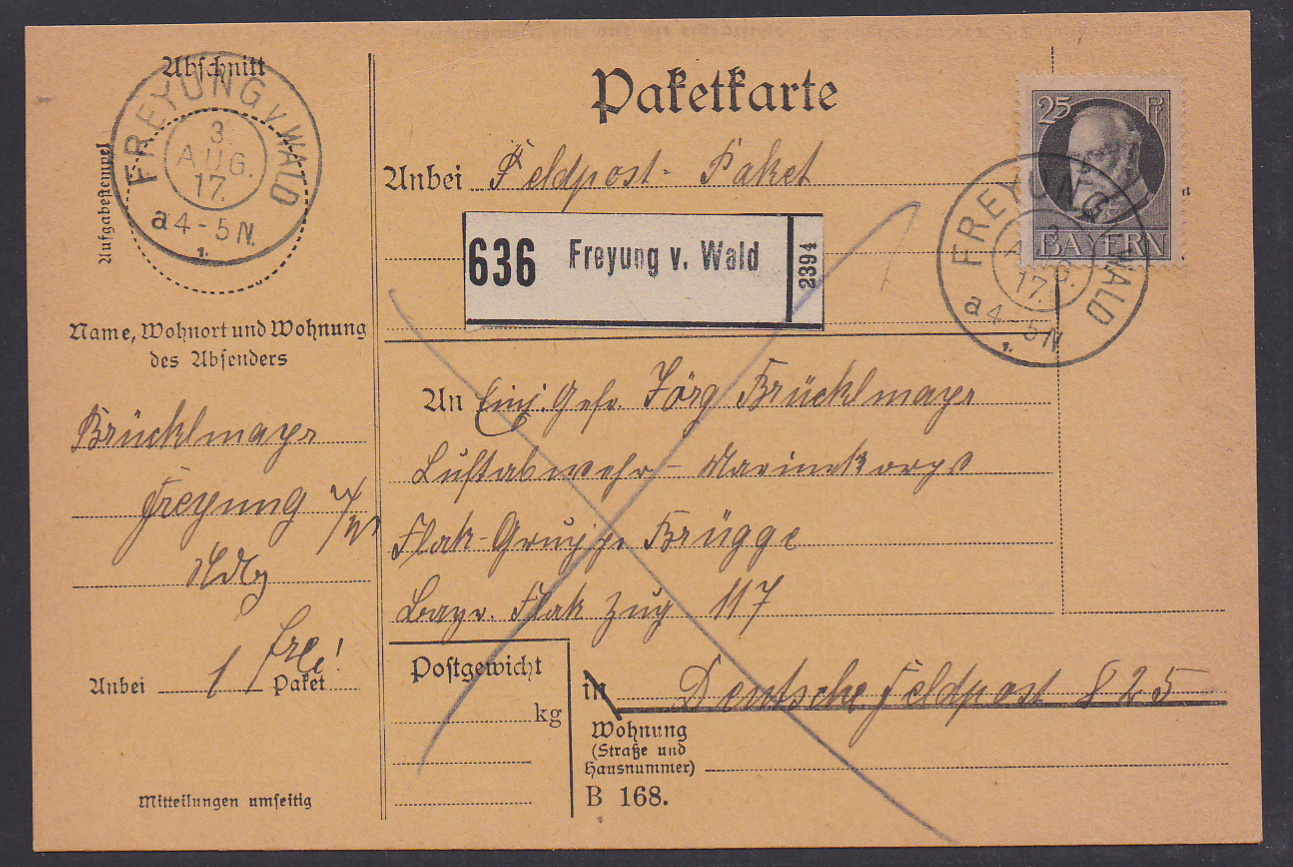 Abschnitt
FREYUNG v. WALD
3.
AUG.
17.
a 4-5 N.
1.
Aufgabestempel
Name, Wohnort und Wohnung
des Absenders
Brücklmayr
Freyung
frei!
Anbei 1 Paket
Mitteilungen umseitig
Paketkarte
Anbei Feldpost-Paket
636 Freyung v. Wald 2394
25 Pf
BAYERN
FREYUNG v. WALD
3.
AUG.
17.
a 4-5 N
1.
An Einj. Gefr. Jörg Brücklmayr
Luftabwehr-Marinekorps
Flak-Gruppe Brügge
Bayr. Flak Zug 117
in Deutsche Feldpost 825
Postgewicht
kg
Wohnung
(Straße und
Hausnummer)
B 168.